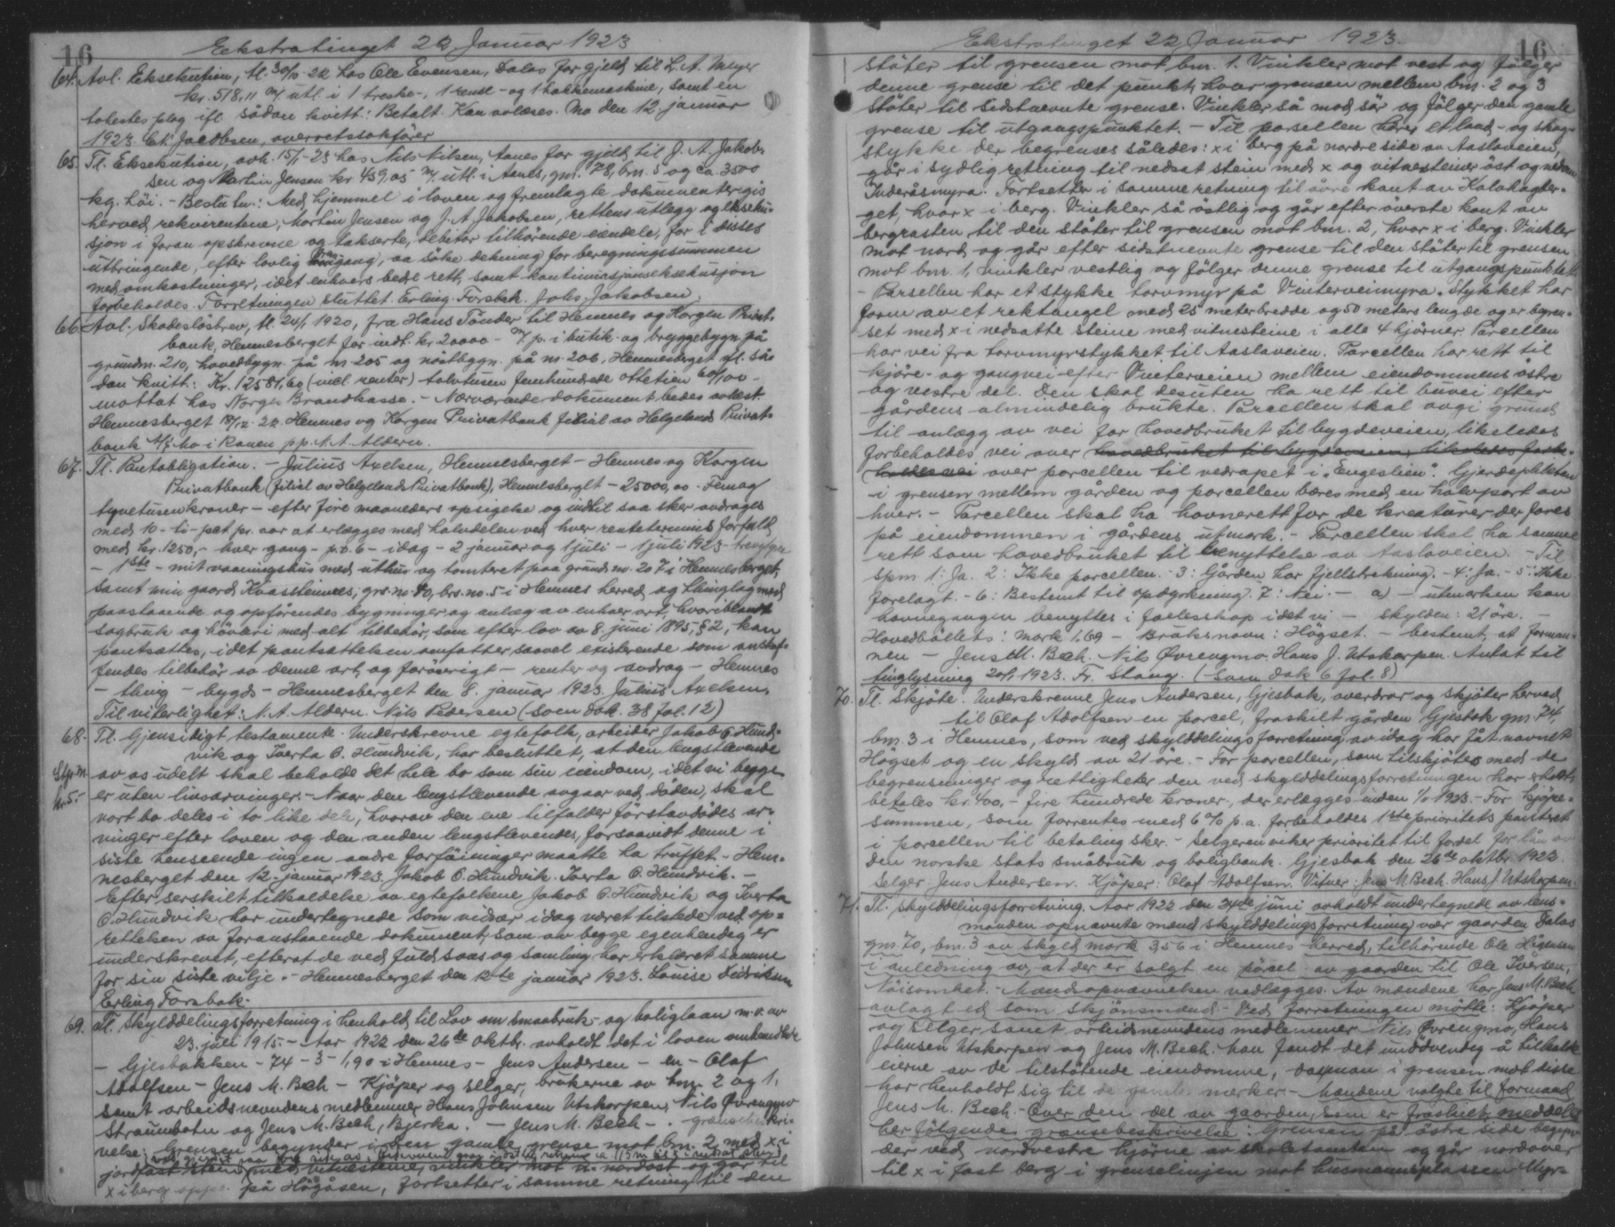 16
Ekstratinget 22 Januar 1923
64. Avl. Eksekution, tl. 30/10 22 hos Ole Evensen, Dalos for gjeld til L.t. Meyer
kr. 518,11 m/ utl. i 1 troske-, 1 rense- og 1 hakkemaskine, samt en
tohestes plog ifl. sådan kvitt: Betalt. Kan avlæses. Mo den 12 januar
1923. Chr. Jacobsen, overretssakfører
65. Tl. Eksekution, avh. 15/1-23 hos Nils Nilsen, Aanes for gjeld til J. A. Jakob-
sen og Martin Jensen kr 459,05 m/ utl. i Aanes, gnr. 78, bnr. 5 og ca. 3500
kg. höi. - Beslutn.: Med hjemmel i loven og fremlagte dokumenter gis
herved rekvirentene, Martin Jensen og J. A. Jakobsen, rettens utlegg og ekseku-
sjon i foran opskrevne og takserte, debitor tilhörende eiendele, for i disses
utbringende, efter lovlig omgang, aa söke dekning for beregningssummen
med omkostninger, idet enhvers bedre rett, samt kontinuasjonseksekusjon
forbeholdes. Forretningen sluttet. Erling Forsbak. Johs. Jakobsen.
66. Avl. Skadeslösbrev, tl. 24/1 1920, fra Hans Tönder til Hemnes og Korgen Privat-
bank, Hemnesberget for indt. kr. 20000 - m/ p. i butik- og bryggebygn på
grundnr. 210, hovedbygn. på nr 205 og nöstbygn. på nr 206, Hemnesberget ifl. så-
dan kvitt: Kr. 12581,60 (incl renter) tolvtusen femhundrede ottetien 60/100 -
mottat hos Norges Brandkasse. - Nærværende dokument bedes avlest.
Hemnesberget 19/12-22. Hemnes og Korgen Privatbank filial av Helgelands Privat-
bank A/S Mo i Ranen pp. N. A. Aldern.
67. Tl. Pantobligation. - Julius Axelsen, Hemnesberget - Hemnes og Korgen
Privatbank (filial av Helgelands Privatbank), Hemnesberget - 25000,00. Femog
tyvetusen kroner - efter fire maaneders opsigelse og indtil saa sker avdrages
med 10 - ti - pct pr. aar at erlægges med halvdelen ved hver rentetermins forfald
med kr. 1250,- hver gang - p. t. 6 - idag - 2 januar og 1 juli - 1 juli 1923
- 1ste - mit vaaningshus med uthus og tomteret paa grund nr. 207 i Hemnesberget,
samt min gaard Kvasshemnes, grs. nr. 70, brs. no. 5 i Hemnes herred og thinglag med
paastaaende og opförendes bygninger og anlæg av enhver art, hvoriblandt
sagbruk og höveri med alt tilbehör, som efter lov av 8. juni 1895 § 2, kan
pantsættes, idet pantsættelsen omfatter saavel existerende som anskaf-
fendes tilbehör av denne art, og forövrigt - renter og avdrag - Hemnes
- thing - bygds - Hemnesberget den 8. januar 1923. Julius Axelsen.
Til viterlighet: N. A. Aldern. Nils Pedersen (Soen dok. 38 fol. 12)
68. Tl. Gjensidigt testamente. Underskrevne egtefolk, arbeider Jakob O. Hund-
vik og Iverta O. Hundvik, har besluttet, at den lengstlevende
av os udelt skal beholde det hele bo som sin eiendom, idet vi begge
er uten livsarvinger. - Naar den lengstlevende avgaar ved döden, skal
Stp. m.
kr. 5.-
vort bo deles i to like dele, hvorav den ene tilfalder förstavdödes ar-
vinger efter loven og den anden lengstlevendes, forsaavidt denne i
siste henseende ingen andre forföininger maatte ha truffet. - Hem-
nesberget den 12. januar 1923. Jakob O. Hundvik. Iverta O. Hundvik. -
Efter serskilt tilkaldelse av egtefolkene Jakob O. Hundvik og Iverta
O. Hundvik har undertegnede som vidner idag været tilstede ved op-
rettelsen av foranstaaende dokument, som av begge egenhendig er
underskrevet, efterat de ved fuld sans og samling har erklæret samme
for sin siste vilje. - Hemnesberget den 12te januar 1923. Louise Didriksen
Erling Forsbak.
69. Tl. Skylddelingsforretning i henhold til Lov om smaabruk- og boliglaan m.v. av
23. juli 1915 - Aar 1922 den 26de oktbr. avholdt det i loven omhandlede
- Gjesbakken - 74 - 3 - 1,90 - i Hemnes - Jens Andersen - en - Olaf
Adolfsen - Jens M. Bech - Kjöper og selger, brukerne av bnr. 2 og 1,
samt arbeidsnevndens medlemmer Hans Johnsen Utskarpen, Nils Övrengmo
Straumbotn og Jens M. Bech, Bjerka. - Jens M. Bech - . grænsebeskri-
velse: Grensen begynder i den gamle grense mot bnr. 2 med x i
jordfast sten med vitnesteine, vinkler mot n. nordost og gar til
x i berg oppe på Högåsen, fortsetter i samme retning til den

Ekstratinget 22 Januar 1923.
16
stöter til grensen mot bnr. 1. Vinkler mot vest og fölger
denne grense til det punkt, hvor grensen mellem bnr. 2 og 3
stöter til sidstnevnte grense. Vinkler så mod sör og fölger den gamle
grense til utgangspunktet. - Til parsellen hörer et land- og skog-
stykke der begrenses således: x i berg på nordre side av Aaslaveien,
går i sydlig retning til nedsat stein med x og vitnesteiner öst og nedom
Inderåsmyra. Fortsetter i samme retning til övre kant av Kalvhagber-
get, hvor x i berg. Vinkler så östlig og går efter överste kant av
bergrasten til den stöter til grensen mot bnr. 2, hvor x i berg. Vinkler
mot nord og går efter sidstnevnte grense til den stöter til grensen
mot bnr. 1, vinkler vestlig og fölger denne grense til utgangspunktet.
- Parsellen har et stykke torvmyr på Vinterveimyra. Stykket har
form av et rektangel med 25 meters bredde og 50 meters lengde og er begren-
set med x i nedsatte steine med vitnesteine i alle 4 hjörner. Parcellen
har vei fra torvmyrstykket til Aaslaveien. Parcellen har rett til
kjöre- og gangvei efter Vinterveien mellem eiendommens östre
og vestre del. Den skal desuten ha rett til buvei efter
gårdens almindelig brukte. Parcellen skal avgi grund
til anlægg av vei for hovedbruket til bygdeveien, likeledes
forbeholdes vei over hovedbruket til bygdeveien, likeledes forbe-
holdes vei over parcellen til vedrapet i "Engeslien". Gjerdeplikten
i grensen mellem gården og parcellen bæres med en halvpart av
hver. - Parcellen skal ha havnerett for de kreaturer der fores
på eiendommen i gårdens utmark. - Parcellen skal ha samme
rett som hovedbruket til benyttelse av Aaslaveien. - Til
spm. 1: Ja. 2: Ikke parcellen. - 3: Gården har fjellstrekning. - 4: Ja. - 5: Ikke
forelagt. - 6: Bestemt til opdyrkning. 7: Nei - a) - utmarken kan
havnegangen benyttes i fællesskap idet vi - skylden: 21 öre. -
Hovedbölets: mark 1,69 - Bruksnavn: Högset. - bestemt, at forman-
nen - Jens M. Bech. Nils Övrengmo. Hans J. Utskarpen. Antat til
tinglysning 20/1 1923. Fr. Stang. (Som dok 6 fol. 8)
70. Tl. Skjöte. Underskrevne Jens Andersen, Gjesbak, overdrar og skjöter herved
til Olaf Adolfsen en parcel, fraskilt gården Gjesbak gnr. 74,
bnr. 3 i Hemnes, som ved skylddelingsforretning av idag har fåt navnet
Högset og en skyld av 21 öre. - For parcellen, som tilskjötes med de
begrensninger og rettigheter den ved skylddelingsforretningen har erholdt,
betales kr. 400,- fire hundrede kroner, der erlægges inden 1/10 1923. - For kjöpe-
summen, som forrentes med 6 % p.a. forbeholdes 1ste prioritets panteret
i parsellen til betaling sker. - Selgeren viker prioritet til fordel for lån av
den norske stats småbruk og boligbank. Gjesbak den 26de oktbr. 1922.
Selger Jens Andersen. Kjöper: Olaf Adolfsen. Vitner: Jens M Bech. Hans J. Utskarpen.
71. Tl. Skylddelingsforretning. Aar 1922 den 24de juni avholdt undertegnede av lens-
manden opnævnte mænd skylddelingsforretning over gaarden Dalas
gnr. 70, bnr. 3 av skyld mark 3,56 i Hemnes herred, tilhörende Ole
i anledning av, at der er solgt en parcel av gaarden til Ole Iversen,
Nöisomhet. - Mandsopnævnelsen vedlægges. Av mændene har Jens M. Bech
avlagt ed som skjönsmand. - Ved forretningen mötte: Kjöper
og selger samt arbeidsnevndens medlemmer Nils Övrengmo, Hans
Johnsen Utskarpen og Jens M. Bech. Man fandt det unödvendig å tilkalle
eierne av de tilstötende eiendomme, da man i grensen mot disse
har henholdt sig til de gamle merker. - Mændene valgte til formand
Jens M. Bech. - Over den del av gaarden, som er fraskilt, meddeles
her fölgende grænsebeskrivelse: Grensen på östre side begyn-
der ved nordvestre hjörne av skoletomten og går nordover
til x i fast berg i grenselinjen mot husmannsplassen Myr-